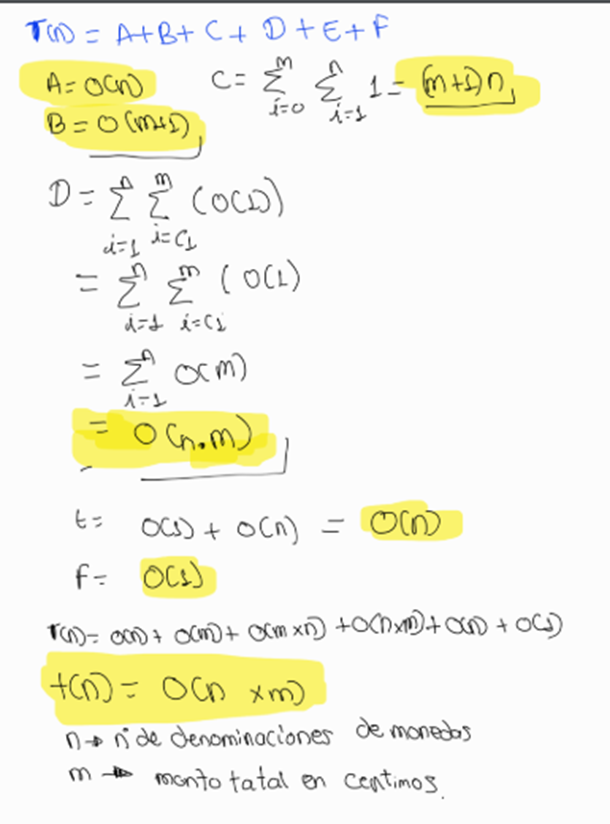 T(n) = A+B+C+D+E+F
A= O(n)
B= O(m+1)
C= m∑i=0 n∑i=1 1 = (m+1)n
D= n∑i=1 m∑i=C1 (O(1))
= n∑i=1 m∑i=Ci (O(1)
= n∑i=1 O(m)
= O(n.m)
t= O(1) + O(n) = O(n)
f= O(1)
T(n)= O(n)+ O(m)+ O(m×n) +O(n×m)+ O(n) + O(1)
t(n)= O(n ×m)
n→ n° de denominaciones de monedas
m → monto tatal en centimos.